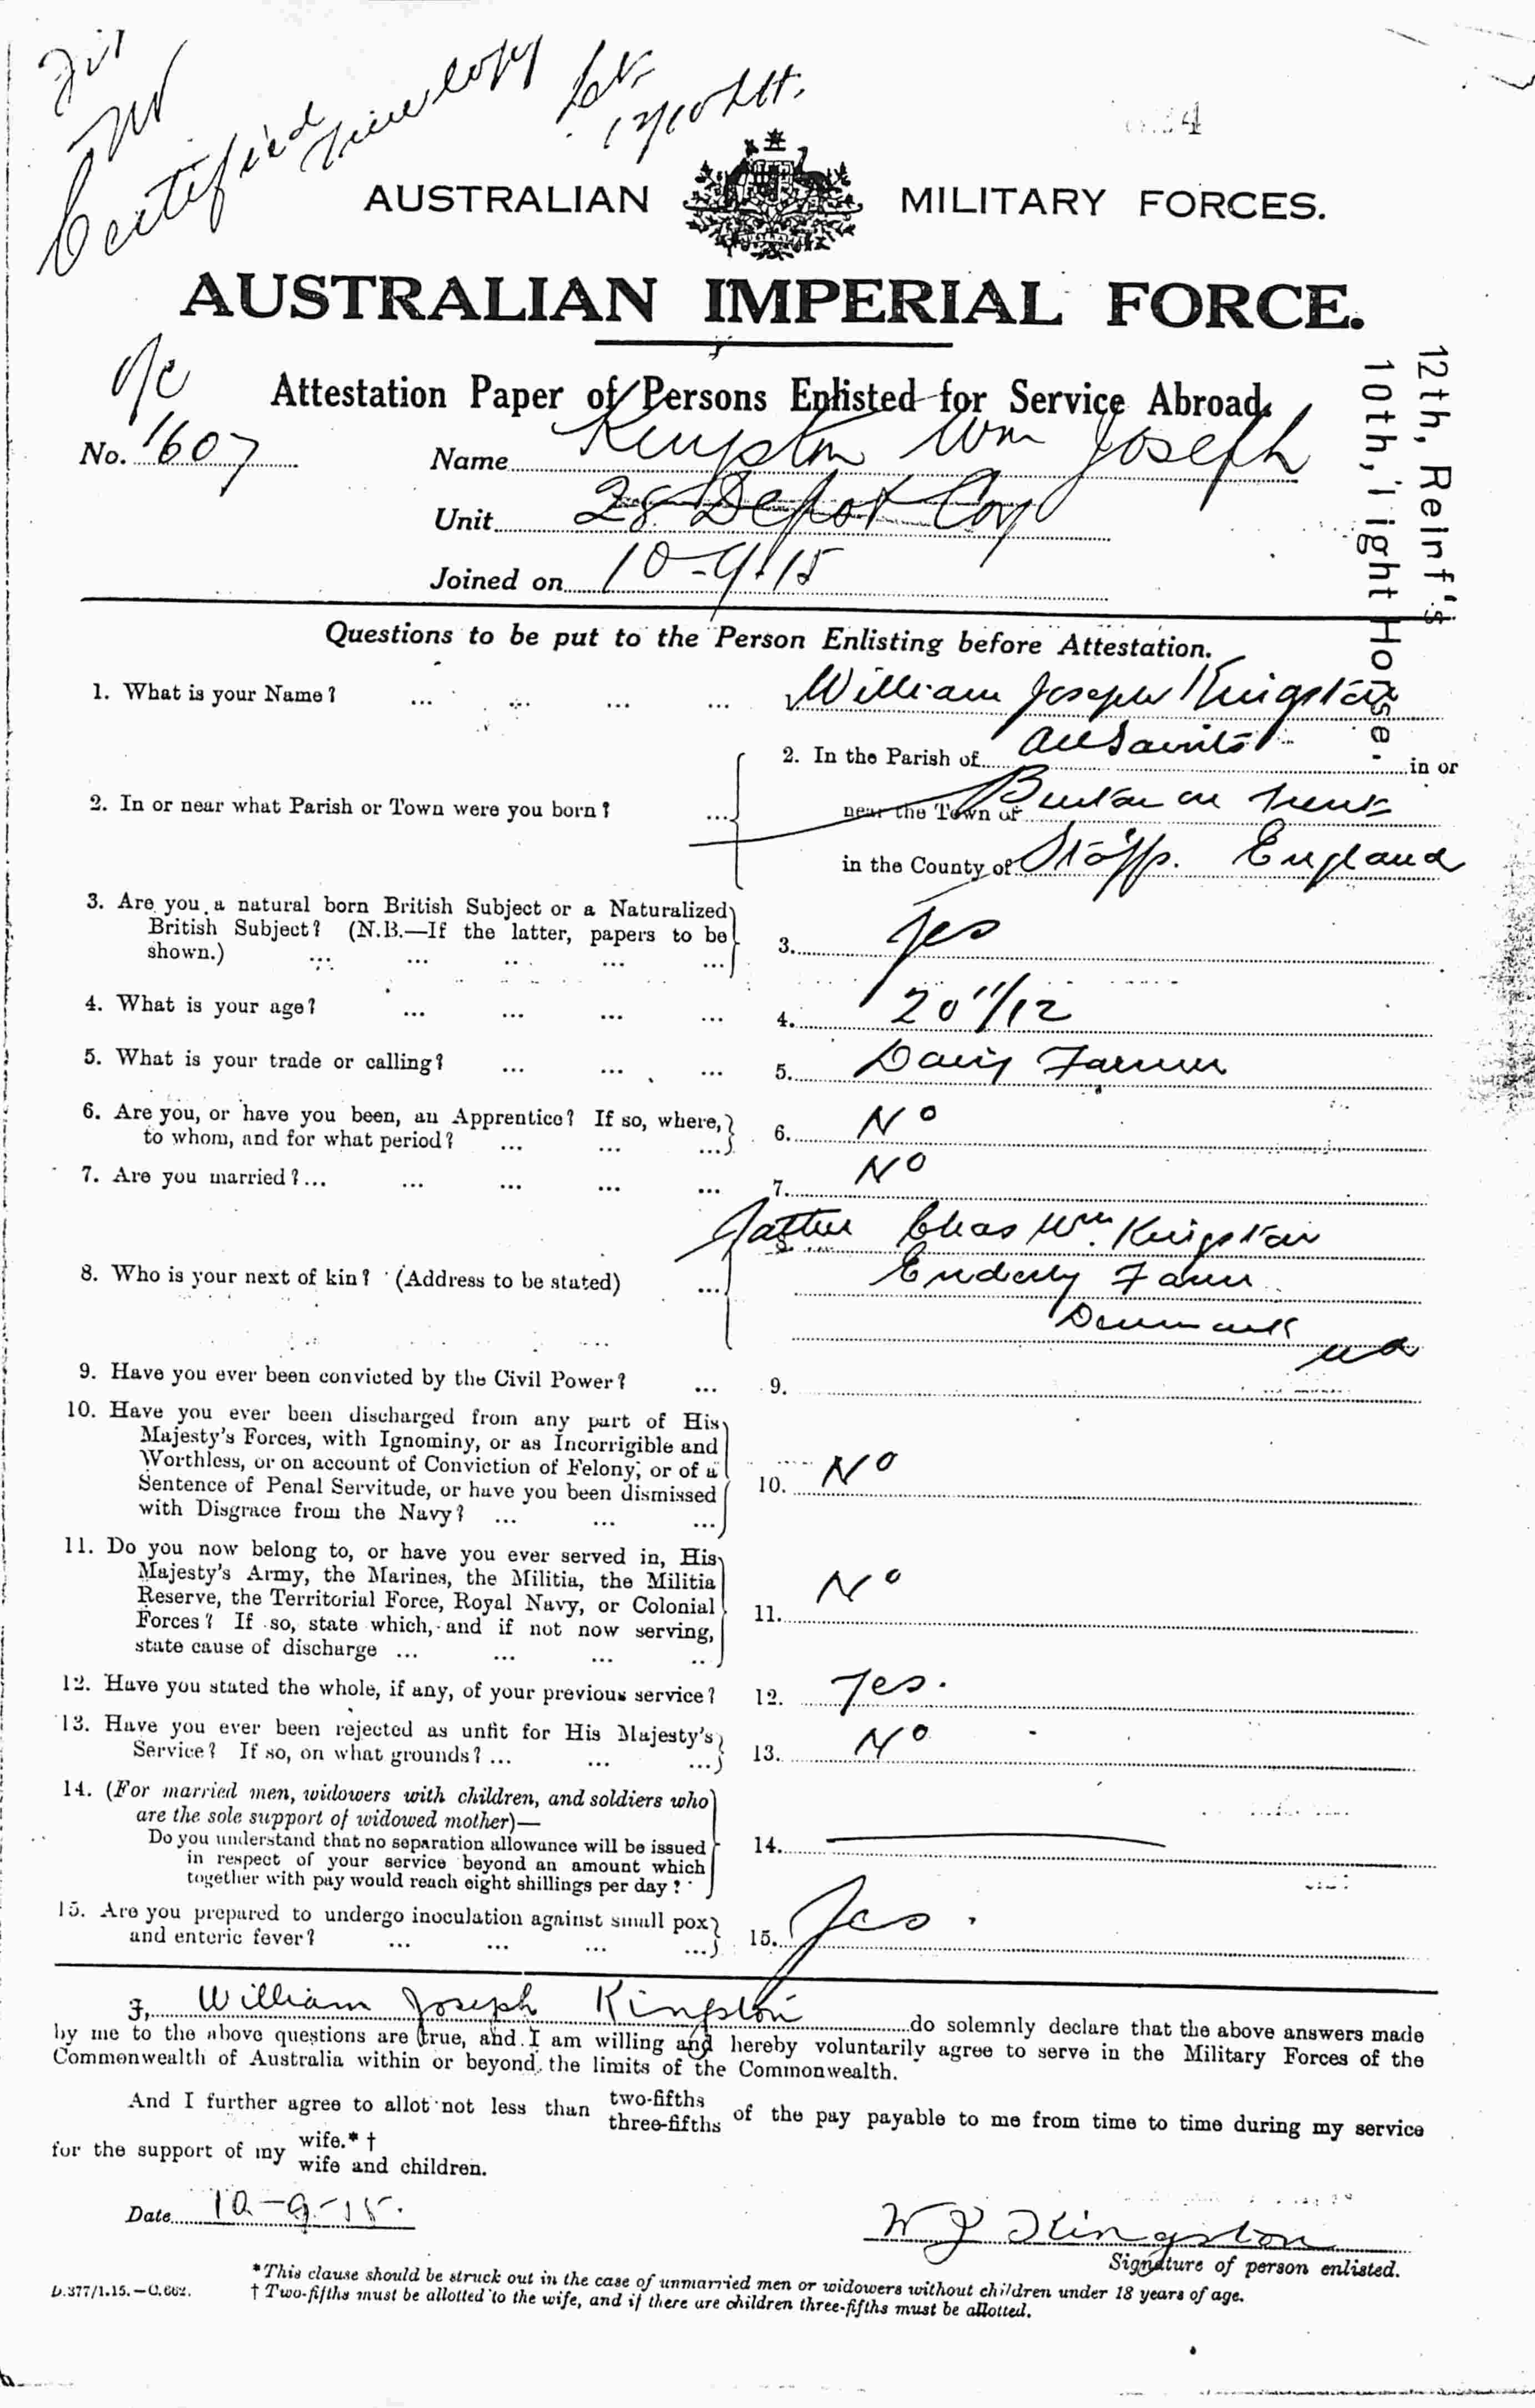 Certified true copy
AUSTRALIAN MILITARY FORCES.
AUSTRALIAN IMPERIAL FORCE.
12th, Reinf's
10th, Light Horse.
Attestation Paper of Persons Enlisted for Service Abroad.
No. 1607 Name Kingston Wm Joseph
Unit 28 Depot Coy
Joined on 10-9-15
Questions to be put to the Person Enlisting before Attestation.
1. What is your Name? ... ... ... ... William Joseph Kingston
2. In or near what Parish or Town were you born? ...
2. In the Parish of All Saints in or
near the Town of Burton on Trent
in the County of Staffs. England
3. Are you a natural born British Subject or a Naturalized
British Subject? (N.B.—If the latter, papers to be
shown.) ... ... ... ... ... 3. Yes
4. What is your age? ... ... ... ... 4. 20 11/12
5. What is your trade or calling? ... ... ... 5. Dairy Farmer
6. Are you, or have you been, an Apprentice? If so, where,
to whom, and for what period? ... ... ... 6. No
7. Are you married?... ... ... ... ... 7. No
8. Who is your next of kin? (Address to be stated) ...
Father Chas Wm. Kingston
8. ...
Enderly Farm
Denmark
WA
9. Have you ever been convicted by the Civil Power? ... 9.
10. Have you ever been discharged from any part of His
Majesty's Forces, with Ignominy, or as Incorrigible and
Worthless, or on account of Conviction of Felony, or of a
Sentence of Penal Servitude, or have you been dismissed
with Disgrace from the Navy? ... ... ... 10. No
11. Do you now belong to, or have you ever served in, His
Majesty's Army, the Marines, the Militia, the Militia
Reserve, the Territorial Force, Royal Navy, or Colonial
Forces? If so, state which, and if not now serving,
state cause of discharge ... ... ... ... 11. No
12. Have you stated the whole, if any, of your previous service? 12. Yes.
13. Have you ever been rejected as unfit for His Majesty's
Service? If so, on what grounds? ... ... ... 13. No
14. (For married men, widowers with children, and soldiers who
are the sole support of widowed mother)—
Do you understand that no separation allowance will be issued
in respect of your service beyond an amount which
together with pay would reach eight shillings per day? 14.
15. Are you prepared to undergo inoculation against small pox
and enteric fever? ... ... ... ... 15. Yes.
I, William Joseph Kingston do solemnly declare that the above answers made
by me to the above questions are true, and I am willing and hereby voluntarily agree to serve in the Military Forces of the
Commonwealth of Australia within or beyond the limits of the Commonwealth.
And I further agree to allot not less than two-fifths three-fifths of the pay payable to me from time to time during my service
for the support of my wife.* † wife and children.
Date 10-9-15.
W J Kingston
Signature of person enlisted.
D.377/1.15.—C.662.
* This clause should be struck out in the case of unmarried men or widowers without children under 18 years of age.
† Two-fifths must be allotted to the wife, and if there are children three-fifths must be allotted.